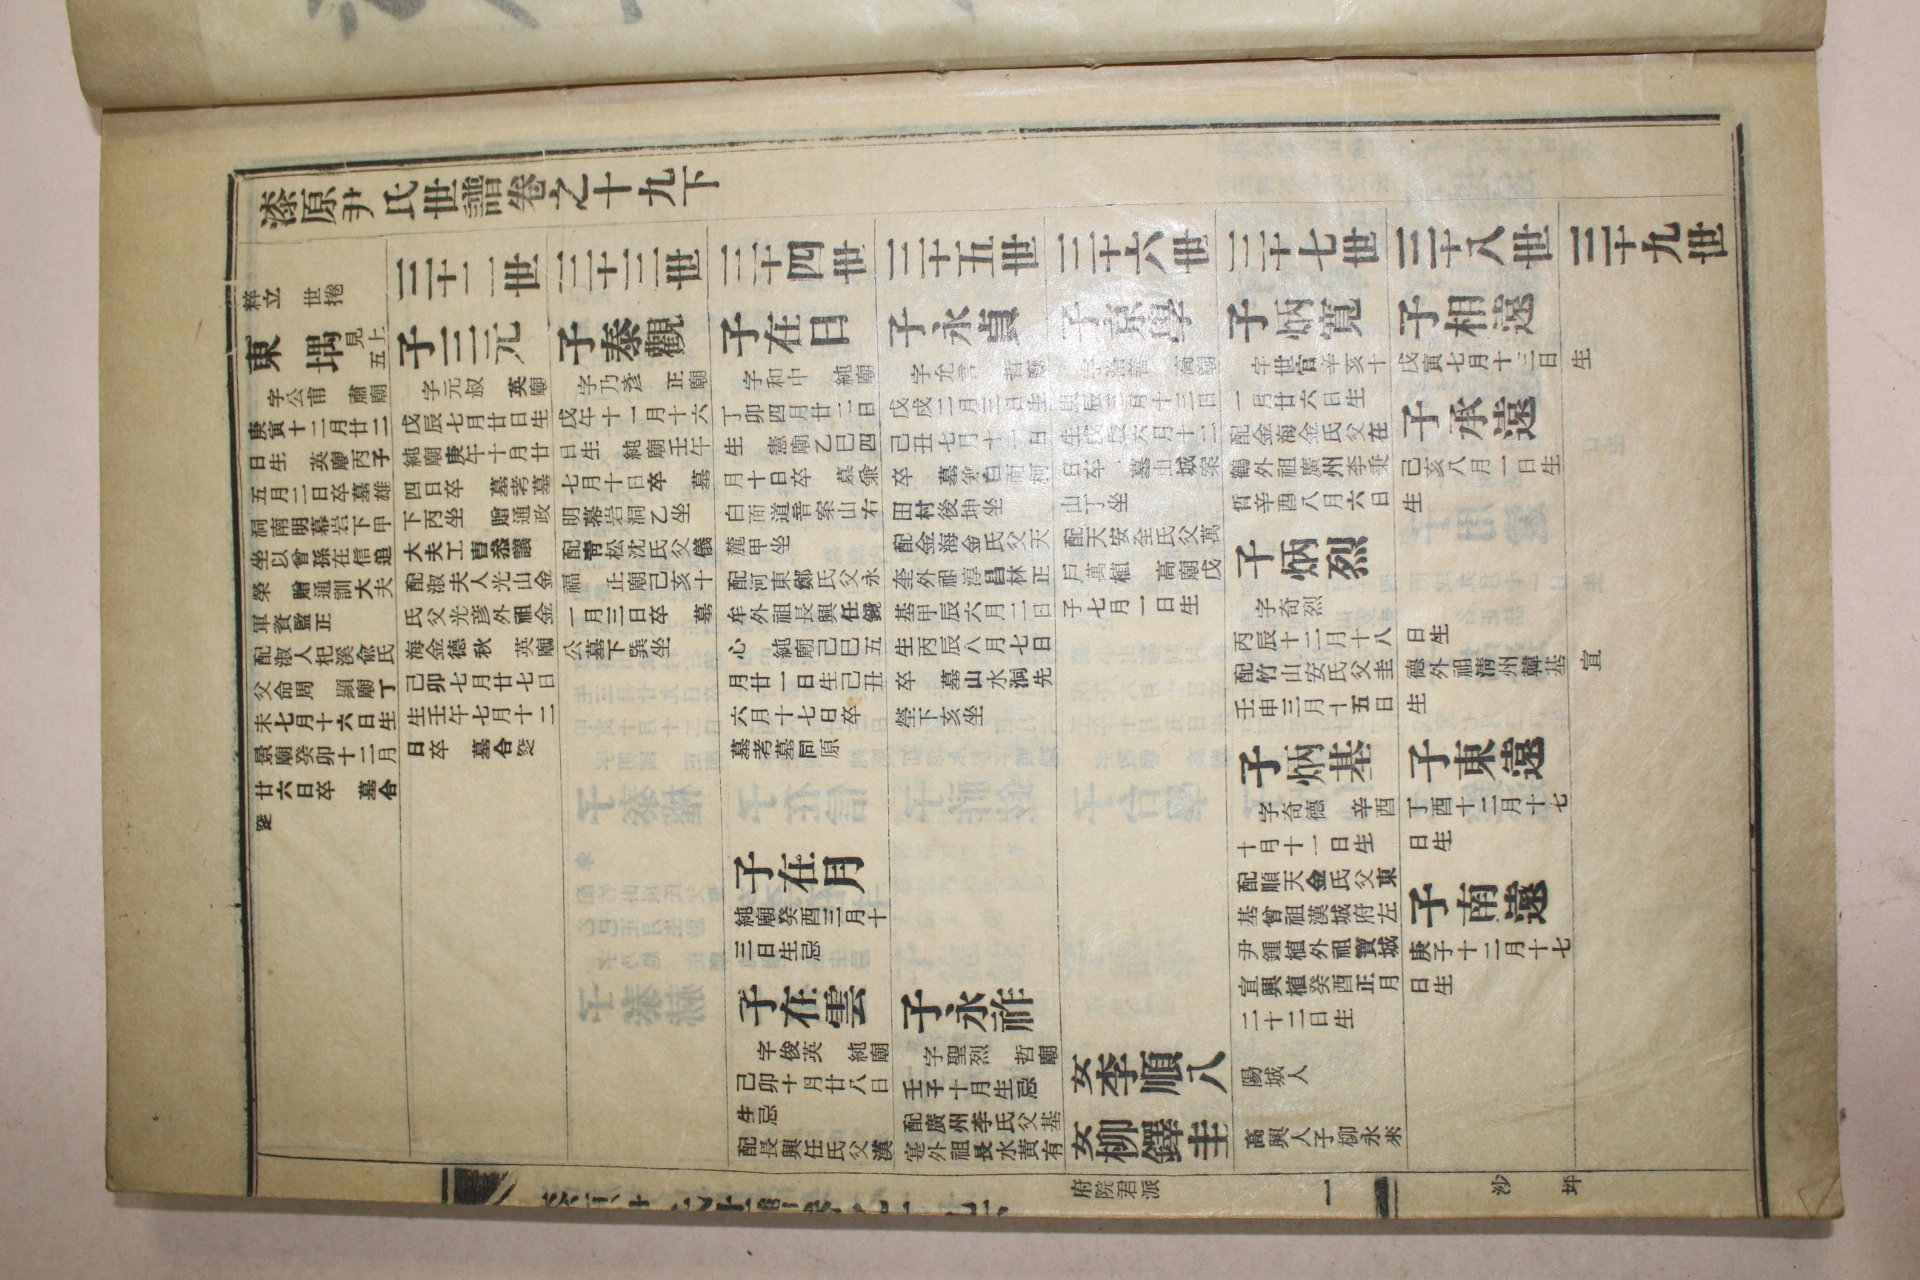 漆原尹氏世譜卷之十九下
粹立 世捲
東堣 見上五
字公甫 肅廟
庚寅十二月廿二
日生 英廟丙子
五月二日卒墓雄
洞南明幕岩下甲
坐以曾孫在信追
榮 贈通訓大夫
軍資監正
配淑人杞溪兪氏
父命周 顯廟丁
未七月十六日生
景廟癸卯十二月
廿六日卒 墓合
窆
三十二世
子三元
字元叔 英廟
戊辰七月廿日生
純廟庚午十月廿
四日卒 墓考墓
下丙坐 贈通政
大夫工曹參議
配淑夫人光山金
氏父光彦外祖金
海金德秋 英廟
己卯七月廿七日
生壬午七月十二
日卒 墓合窆
三十三世
子泰觀
字乃彥 正廟
戊午十一月十六
日生 純廟壬午
七月十日卒 墓
明幕岩洞乙坐
配靑松沈氏父儀
福 正廟己亥十
一月三日卒 墓
公墓下巽坐
三十四世
子在日
字和中 純廟
丁卯四月廿二日
生 憲廟乙巳四
月十日卒 墓爺
白面道音案山右
麓甲坐
配河東鄭氏父永
牟外祖長興任鏡
心 純廟己巳五
月廿一日生己丑
六月十七日卒
墓考墓同原
子在月
純廟癸酉三月十
三日生忌
子在雲
字俊英 純廟
己卯十月廿八日
生忌
配長興任氏父漢
三十五世
子永貞
字允言
戊戌二月三日生
己丑七月十二日
卒 墓爺白面柯
田村後坤坐
配金海金氏父天
奎外祖淳昌林正
基甲辰六月二日
生丙辰八月七日
卒 墓山水洞先
塋下亥坐
子永祚
字聖烈 哲廟
壬子十月生忌
配廣州李氏父基
寔外祖長水黃有
三十六世
高廟
日卒 墓山城案
山丁坐
配天安全氏父萬
戶萬植 高廟戊
子七月一日生
女李順八
女柳鐸圭
三十七世
子炳寬
字世官辛亥十
一月廿六日生
配金海金氏父在
鶴外祖廣州李秉
哲辛酉八月六日
生
子炳烈
字奇烈
丙辰十二月十八
日生
配竹山安氏父圭
德外祖淸州韓基
宜
壬申三月十五日
生
子炳基
字奇德 辛酉
十月十一日生
配順天金氏父東
基曾祖漢城府左
尹鍾植外祖寶城
宣興植癸酉正月
二十二日生
陽城人
高興人子柳永來
三十八世
子相遠
戊寅七月十三日
生
子承遠
己亥八月一日生
子東遠
丁酉十二月十七
日生
子南遠
庚子十二月十七
日生
三十九世
府院君派
一
沙坪